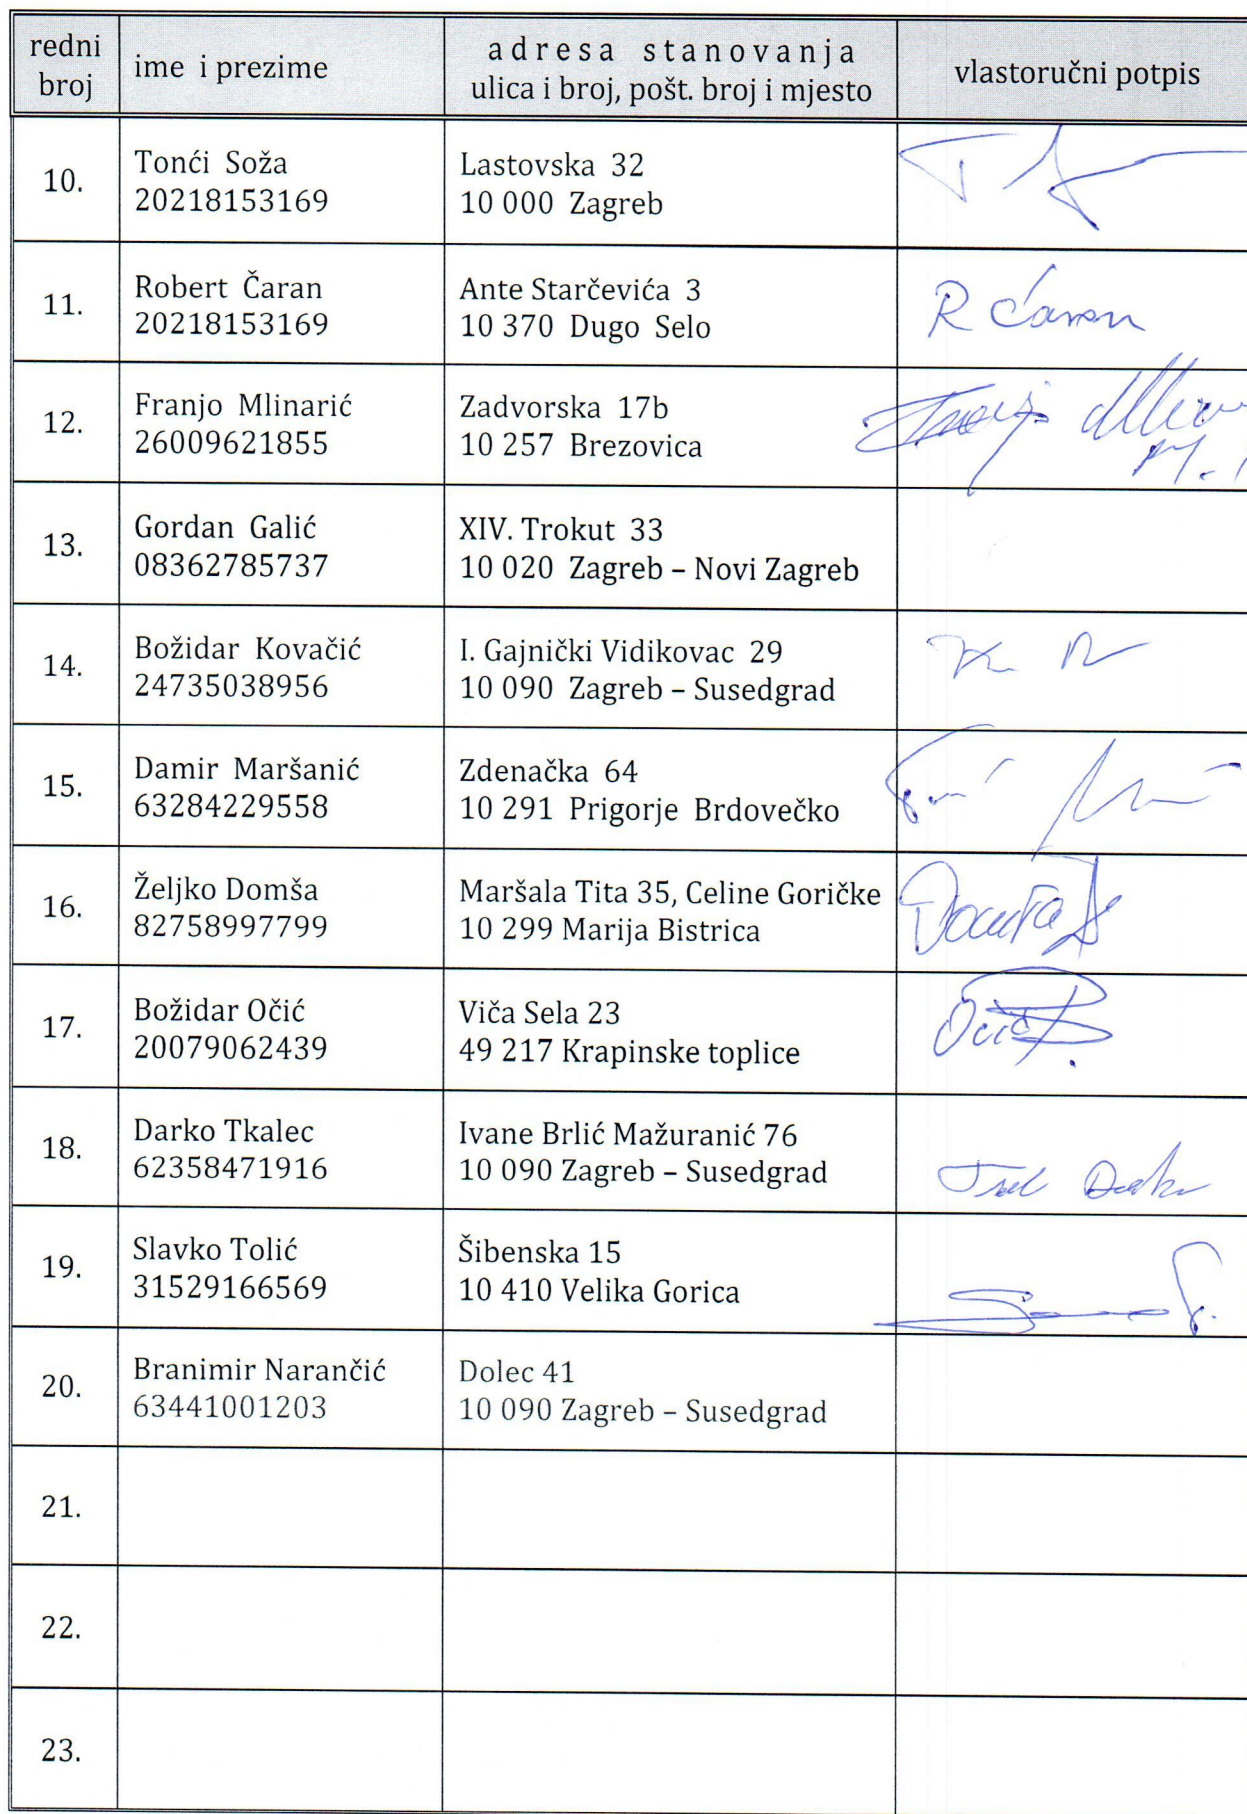 redni broj
ime i prezime
adresa stanovanja
ulica i broj, pošt. broj i mjesto
vlastoručni potpis
10.
Tonći Soža
20218153169
Lastovska 32
10 000 Zagreb
11.
Robert Čaran
20218153169
Ante Starčevića 3
10 370 Dugo Selo
R Ćaran
12.
Franjo Mlinarić
26009621855
Zadvorska 17b
10 257 Brezovica
13.
Gordan Galić
08362785737
XIV. Trokut 33
10 020 Zagreb – Novi Zagreb
14.
Božidar Kovačić
24735038956
I. Gajnički Vidikovac 29
10 090 Zagreb – Susedgrad
15.
Damir Maršanić
63284229558
Zdenačka 64
10 291 Prigorje Brdovečko
16.
Željko Domša
82758997799
Maršala Tita 35, Celine Goričke
10 299 Marija Bistrica
17.
Božidar Očić
20079062439
Viča Sela 23
49 217 Krapinske toplice
18.
Darko Tkalec
62358471916
Ivane Brlić Mažuranić 76
10 090 Zagreb – Susedgrad
19.
Slavko Tolić
31529166569
Šibenska 15
10 410 Velika Gorica
20.
Branimir Narančić
63441001203
Dolec 41
10 090 Zagreb – Susedgrad
21.
22.
23.